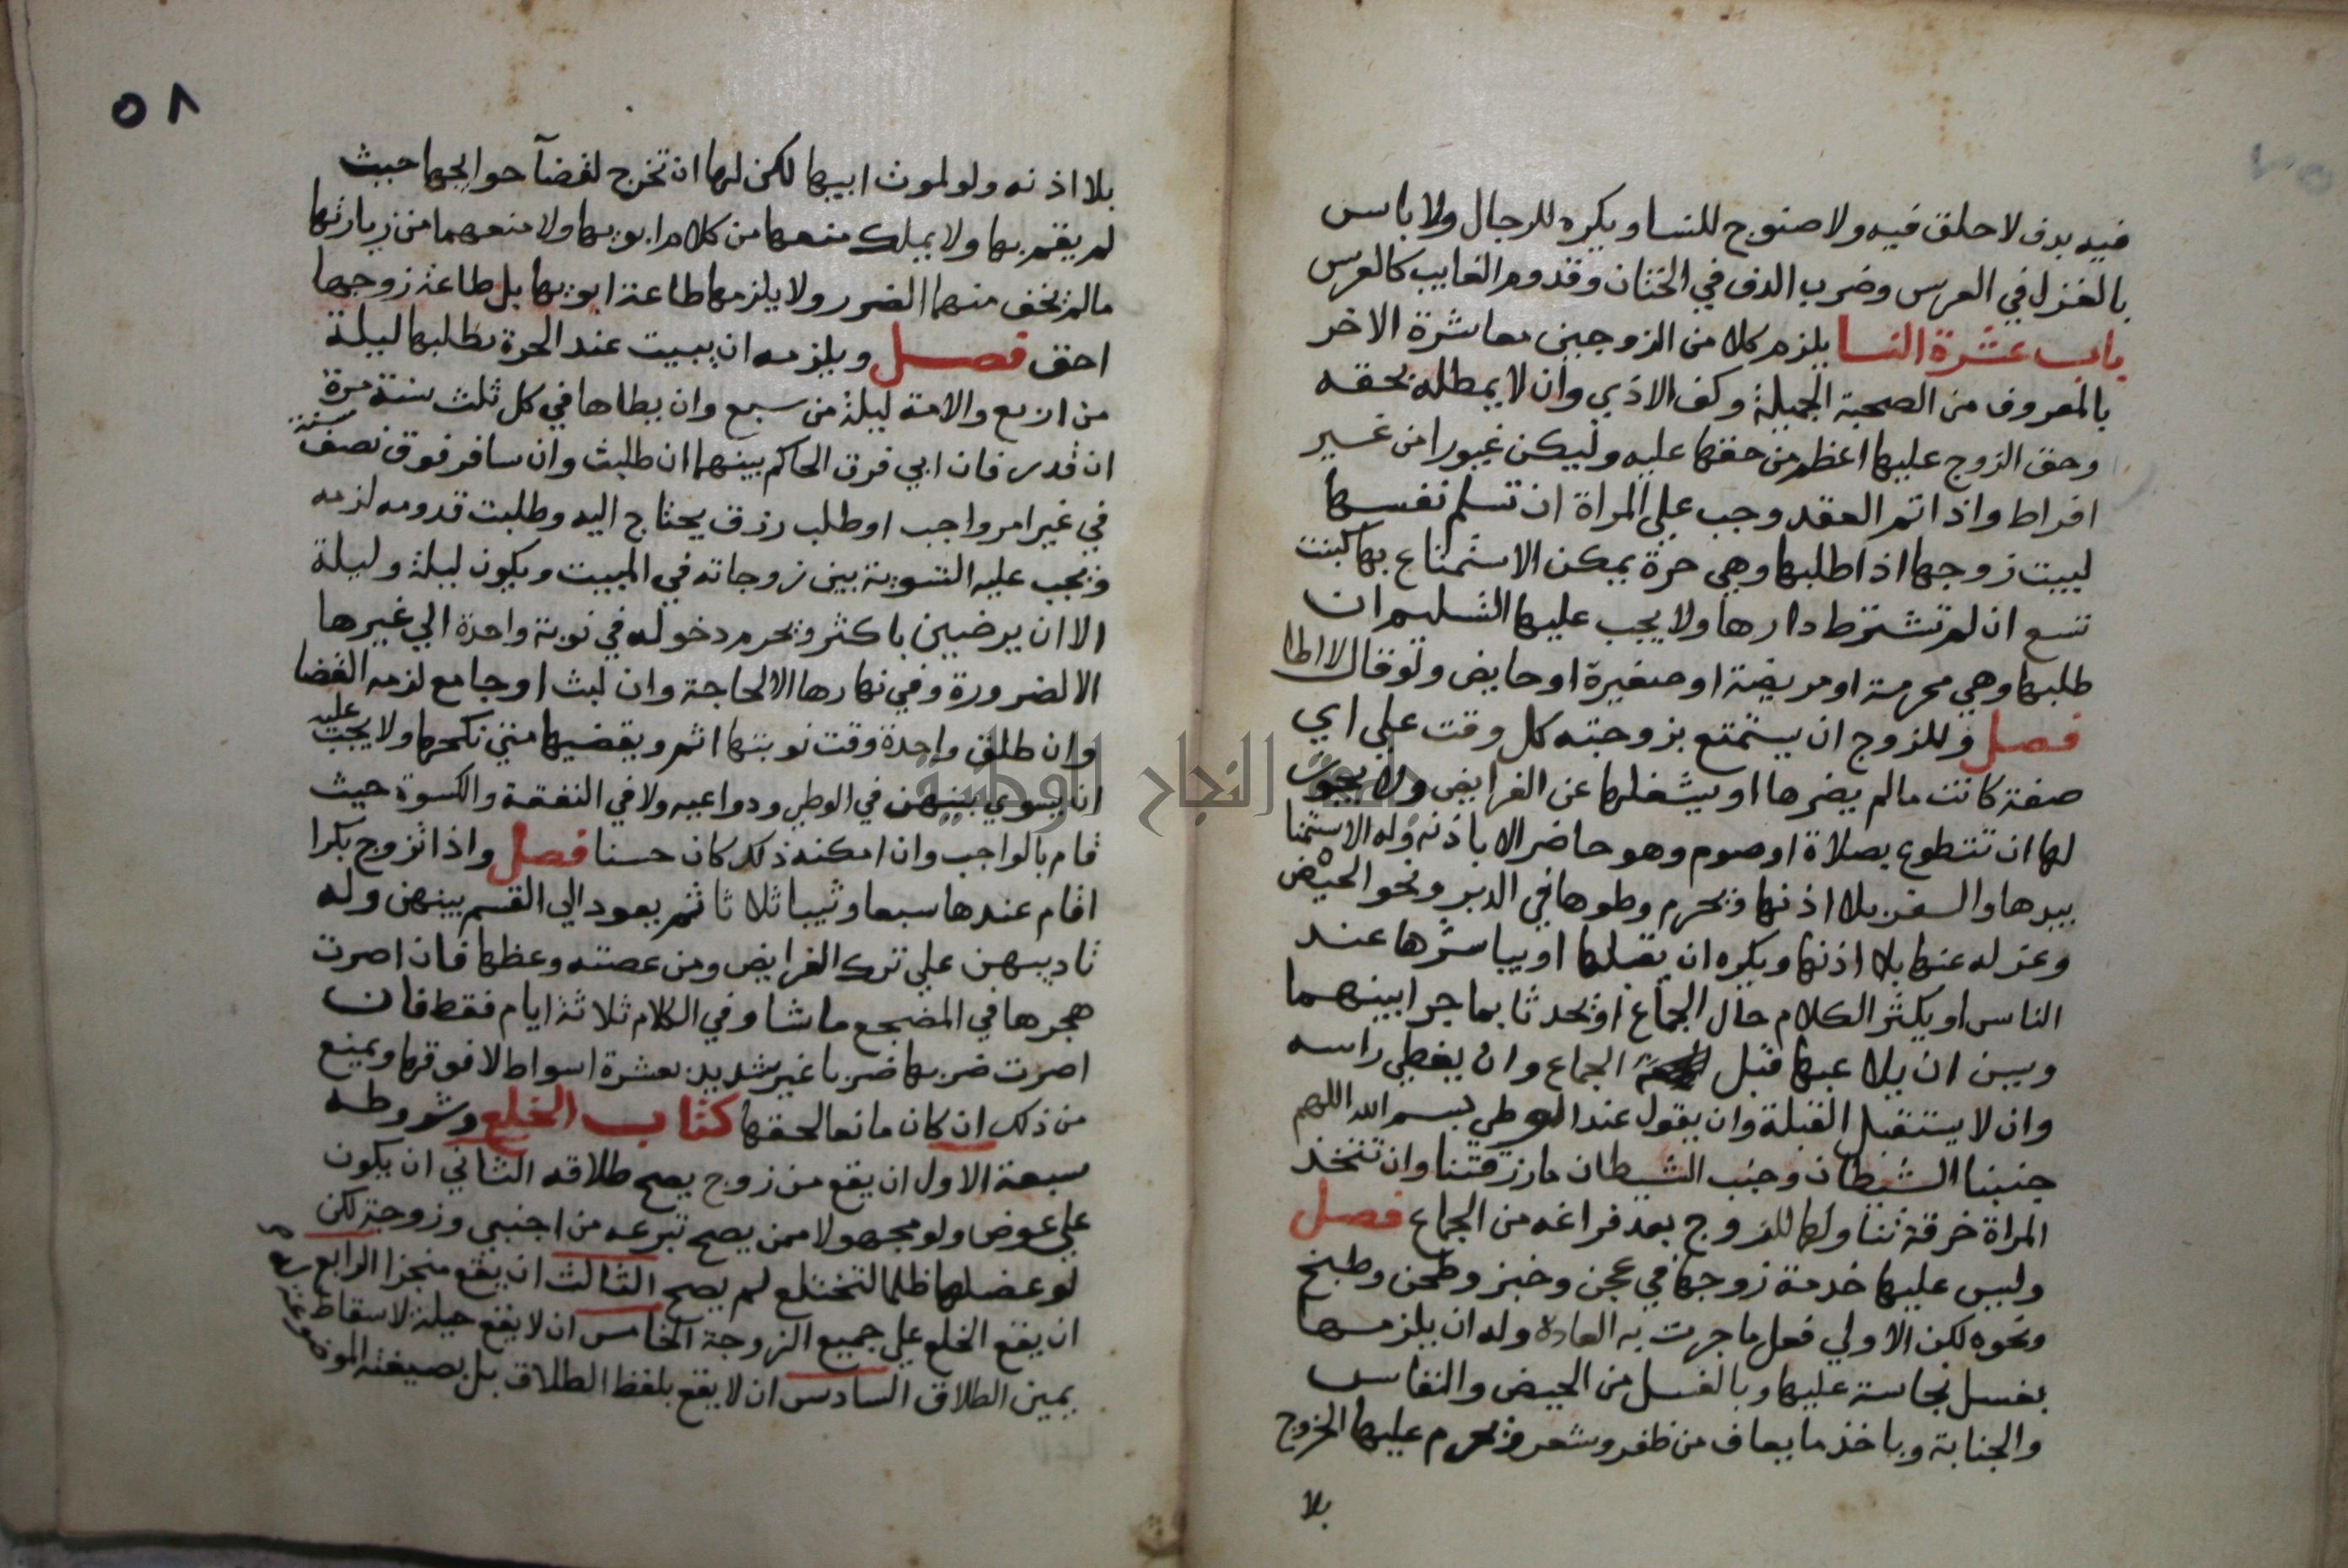 فيه بدف لا حلق فيه ولا صنوج للنسا ويكره للرجال ولا باس
بالغزل في العرس وضرب الدف في الختان وقدوم الغايب كالعرس
باب عشرة النسا يلزم كلا من الزوجين معاشرة الاخر
بالمعروف من الصحبة الجميلة وكف الاذي وان لا يمطله بحقه
وحق الزوج عليها اعظم من حقها عليه وليكن غيورا من غير
افراط واذا تم العقد وجب علي المراة ان تسلم نفسها
لبيت زوجها اذا طلبها وهي حرة يمكن الاستمتاع بها كبنت
تسع ان لم تشترط دارها ولا يجب عليها التسليم ان
طلبها وهي محرمة او مريضة او صغيرة او حايض ولو قال لا اطا
فصل وللزوج ان يستمتع بزوجته كل وقت علي اي
صفة كانت مالم يضرها او يشغلها عن الفرايض ولا يجوز
لها ان تتطوع بصلاة او صوم وهو حاضر الا باذنه وله الاستمنا
بيدها والسفر بلا اذنها ويحرم وطوها في الدبر ونحو الحيض
وعزله عنها بلا اذنها ويكره ان يقبلها او يباشرها عند
الناس او يكثر الكلام حال الجماع او يحدثا بما جرا بينهما
ويسن ان يلاعبها قبل الجماع وان يغطي راسه
وان لا يستقبل القبلة وان يقول عند الوطي بسم الله اللهم
جنبنا الشيطان وجنب الشيطان ما رزقتنا وان تتخذ
المراة خرقة تناولها للزوج بعد فراغه من الجماع فصل
وليس عليها خدمة زوجها في عجن وخبز وطحن وطبخ
ونحوه لكن الاولي فعل ما جرت به العادة وله ان يلزمها
بغسل نجاسة عليها وبالغسل من الحيض والنفاس
والجنابة وباخذ ما يعاف من ظفر وشعر ويحرم عليها الخروج
بلا
٥٨
بلا اذنه ولو لموت ابيها لكن لها ان تخرج لقضآ حوايجها حيث
لم يقم بها ولا يملك منعها من كلام ابويها ولا منعهما من زيارتها
مالم يخف منهما الضرر ولا يلزمها طاعة ابويها بل طاعة زوجها
احق فصل ويلزمه ان يبيت عند الحرة بطلبها ليلة
من اربع والامة ليلة من سبع وان يطاها في كل ثلث سنة مرة
ان قدر فان ابي فرق الحاكم بينهما ان طلبت وان سافر فوق نصف سنة
في غير امر واجب او طلب رزق يحتاج اليه وطلبت قدومه لزمه
ويجب عليه التسوية بين زوجاته في المبيت ويكون ليلة وليلة
الا ان يرضين باكثر ويحرم دخوله في نوبة واحدة الي غيرها
الا لضرورة وفي نهارها الا لحاجة وان لبث او جامع لزمه القضا
وان طلق واحدة وقت نوبتها اثم ويقضيها متي نكحها ولا يجب عليه
ان يسوي بينهن في الوطي ودواعيه ولا في النفقة والكسوة حيث
قام بالواجب وان امكنه ذلك كان حسنا فصل واذا تزوج بكرا
اقام عندها سبعا وثيبا ثلاثا ثم يعود الي القسم بينهن وله
تاديبهن علي ترك الفرايض ومن عصته وعظها فان اصرت
هجرها في المضجع ما شا وفي الكلام ثلاثة ايام فقط فان
اصرت ضربها ضربا غير شديد بعشرة اسواط لا فوقها ويمنع
من ذلك ان كان مانعا لحقها كتاب الخلع وشروطه
سبعة الاول ان يقع من زوج يصح طلاقه الثاني ان يكون
علي عوض ولو مجهولا ممن يصح تبرعه من اجنبي وزوجة لكن
لو عضلها ظلما لتختلع لم يصح الثالث ان يقع منجزا الرابع
ان يقع الخلع علي جميع الزوجة الخامس ان لا يقع حيلة لاسقاط
يمين الطلاق السادس ان لا يقع بلفظ الطلاق بل بصيغته الموضوعة
جامعة النجاح الوطنية